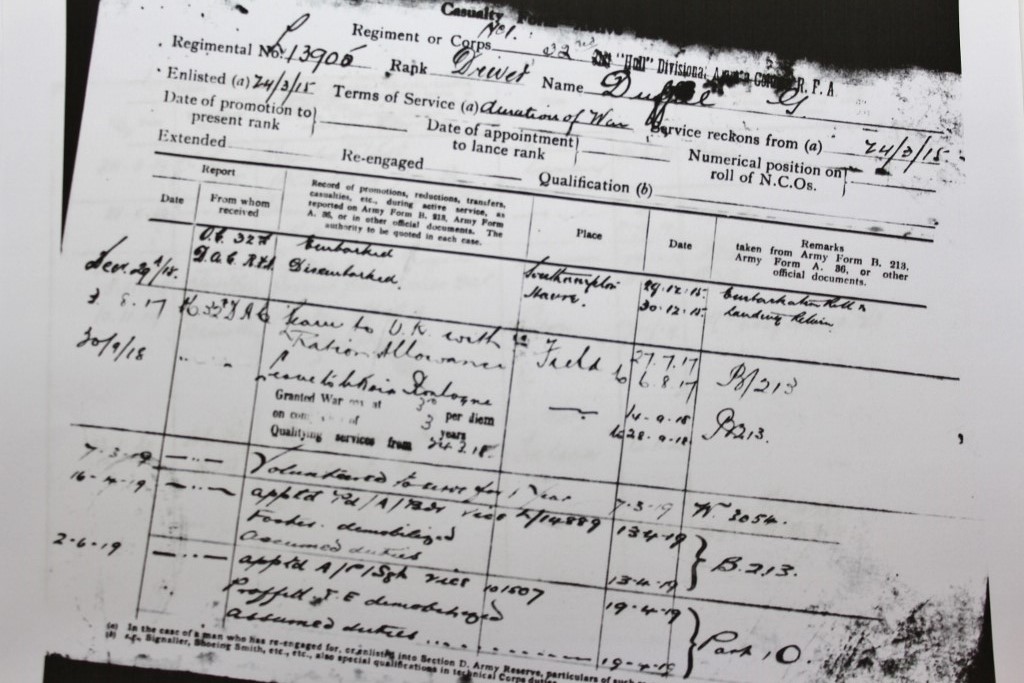 Casualty Form
Regiment or Corps No 1. 32nd "Hull" Divisional R.F.A
Regimental No. L 13906 Rank Driver Name G
Enlisted (a) 24/3/15 Terms of Service (a) duration of War Service reckons from (a) 24/3/15
Date of promotion to present rank Date of appointment to lance rank Numerical position on roll of N.C.Os.
Extended Re-engaged Qualification (b)
Report
Date From whom received
Record of promotions, reductions, transfers, casualties, etc., during active service, as reported on Army Form B. 213, Army Form A. 36, or in other official documents. The authority to be quoted in each case.
Place Date
Remarks taken from Army Form B. 213, Army Form A. 36, or other official documents.
O.C. 32nd Embarked Southampton 29.12.15. Embarkation Roll
Dec. 29th/15. D.A.C. R.F.A. Disembarked. Havre. 30.12.15. Landing Return
3.8.17 32 D A C Leave to U.K. with in Field 27.7.17 B/213
Ration Allowance to 6.8.17
30/9/18 Leave to Boulogne 14-9-18 B213.
Granted War at 3d per diem to 28.9.18.
on 3 years
Qualifying services from 24.3.18.
7-3-19 Volunteered to serve for 1 Year 7-3-19 W. 3054.
16-4-19. appltd Pd/A/Bdr vice L/14889 13.4.19 B.213.
Foster. demobilized
assumed duties 13.4.19
2-6-19 appltd A/P/Sgt vice 101507 19-4-19 Part 10.
Proffell S. E demobilized
assumed duties 19-4-19
(a) In the case of a man who has re-engaged for, or enlisted into Section D. Army Reserve, particulars of such
(b) e.g., Signaller, Shoeing Smith, etc., etc., also special qualifications in technical Corps duties